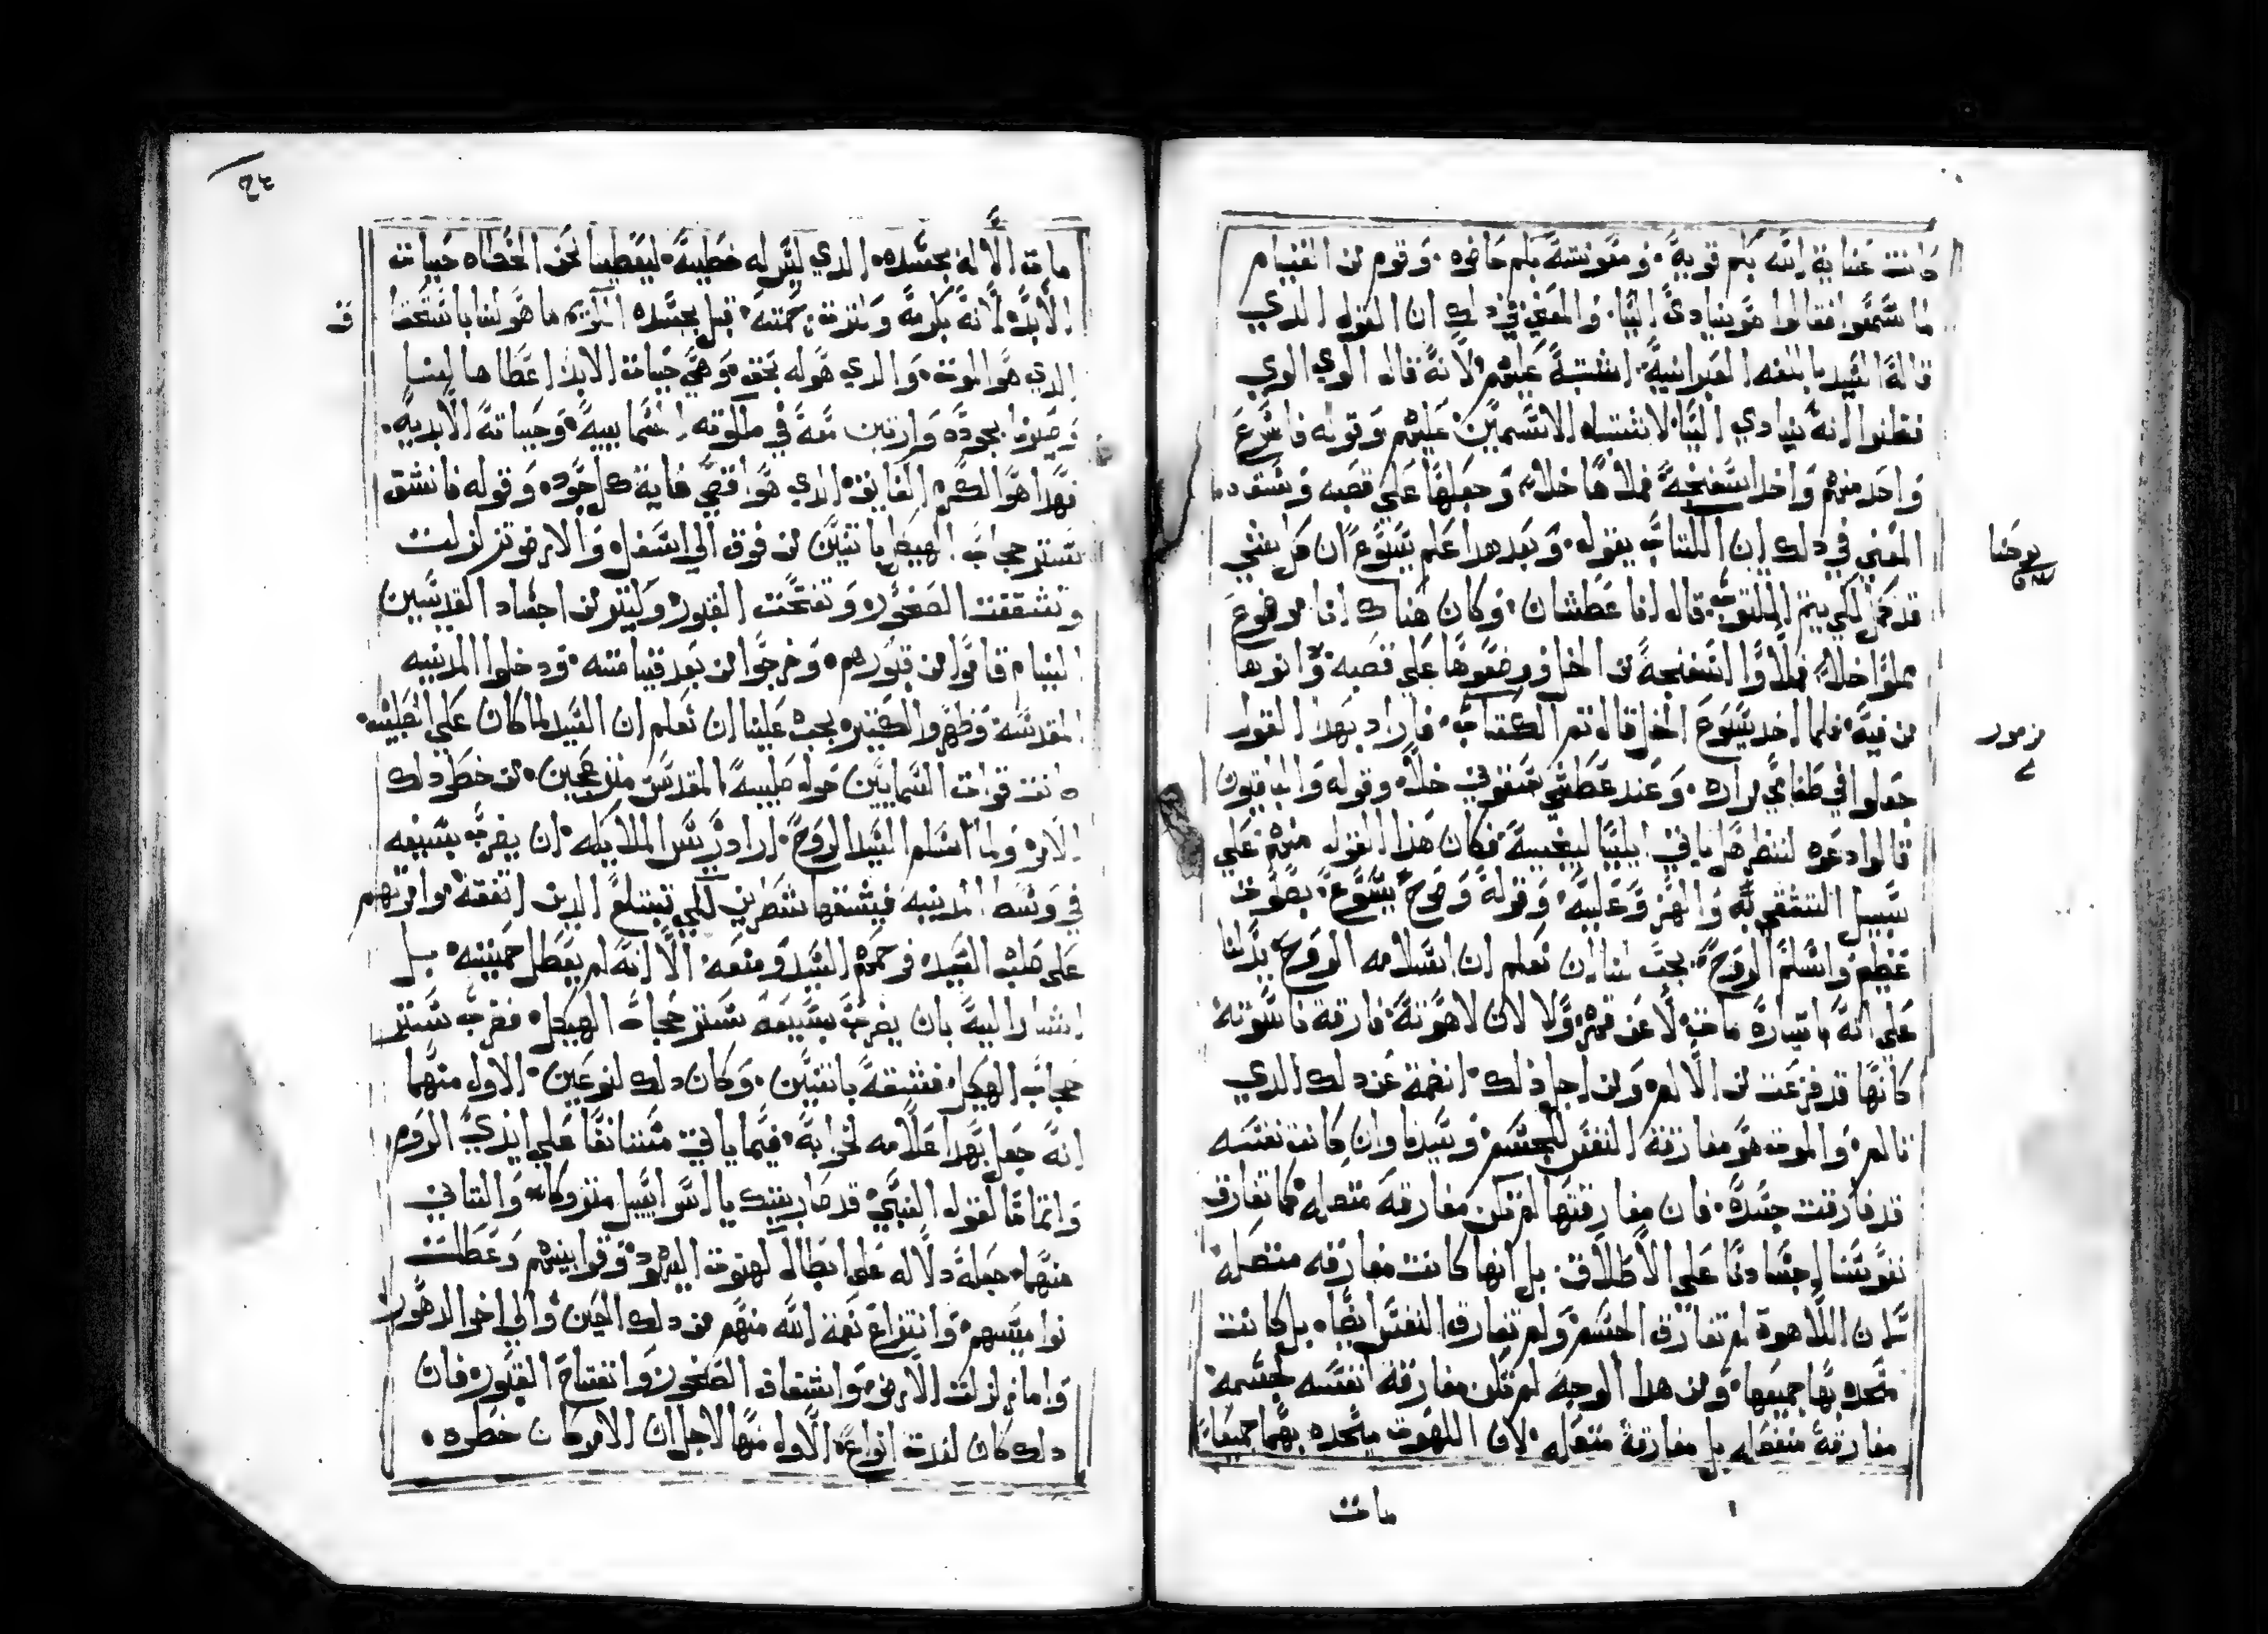 كانت عناية الله بكم قوية. ومتونته بكم حاضره. وقوم من القيام
لما سمعوا فقالوا هو ينادى اليا. والمعني في دلك ان القول الدي
قاله السيد باللغه العبرانيه. اشتبه عليهم لانه قال الوي الوي
فظنوا انه ينادي اليا لاشتباه الاسمين عليهم وقوله فاسرع
واحد منهم واخد اسفنجه فملاها خلا وجعلها علي قصبه وسقاه
المعني في دلك ان الكتاب يقول. وبعد هدا علم يسوع ان كل شي
قد كمل لكي يتم المكتوب. قال انا عطشان. وكان هناك انا موضوع
مملوا خلا. فملاوا السفنجة من الخل ووضعوها علي قصبه وادنوها
من فيه. فلما اخد يسوع الخل قال تم الكتاب. فاراد بهدا القول
جعلوا في طعامي مراره. وعند عطشي سقوني خلا. وقوله والباقيون
قالوا دعوه لننظر هل ياتي ايليا ليخيبه فكان هدا القول منهم علي
سبيل التشفي به والهزو عليه. وقوله وصرخ يسوع بصوت
عظيم واسلم الروح. يجب لنا ان نعلم ان اسلامه الروح يدلنا
علي انه باتياره مات لا عن قهر. ولا لان لاهوته فارقه ناسوته
كانها قد فزعت من الالم. ومن اجل دلك انضمة عن دلك الدي
تالم. والموت هو مفارقة النفس للجسم. وسيدنا وان كانت نفسه
قد فارقت جسده. فان مفارقتها لم تكن مفارقة متصله كما تفارق
نفوسنا اجسادنا علي الاطلاق. بل انها كانت مفارقه متصله
لان اللاهوة لم تفارق الجسم. ولم تفارق النفس ايضا. بل كانت
متحده بهما جميعها. ومن هدا الوجه لم تكن مفارقة انفسه لجسمه
مفارقة منفصله بل مفارقة متصله. لان اللهوت متحده بهما جميعا
مات
يوحنا
مزمور
مات الاله بجسده. الدي ليس له خطية. ليعطينا نحن الخطاه حيات
الابد. لانه بكرمه وكثرت رحمته. قبل بجسده الكريم ما هو لنا باستحقا
ق
الدي هو الموت. والدي هو له بحق. وهي حيات الابد. اعطاها لنا
وصرنا بجوده وارتين معه في ملكوته السماييه. وحياته الابديه.
فهدا هو الكرم الفايق. الدي هو اقصي غاية كل جود. وقوله فانشق
ستر حجاب الهيكل باتنين من فوق الي اسفل والارض تزلزلت
وتشققت الصخور. وتفتحت القبور. وكتير من اجساد القديسين
النيام قاموا من قبورهم. وخرجوا من بعد قيامته. ودخلوا المدينه
المقدسه وظهروا لكتير. يجب علينا ان نعلم ان السيد لما كان علي الصليب
كانت قوات السماييين حول صليبه المقدس منزعجين. من خطر دلك
الامر. ولما اسلم السيد الروح. اراد رييس الملايكه. ان يضرب بسيفه
في وسط المدينه فيشقها شطرين. لكي تبتلع الدين اتفقة موامرتهم
علي صلب السيد. فرحمهم السيد ومنعه. الا انه لم يعطل حميته. بل
اشار اليه بان يضرب بسيفه ستر حجاب الهيكل. فضرب ستر
حجاب الهيكل. فشقه باتنين. وكان دلك لنوعين. الاول منهما
انه جعل بهدا علامه لخرابه. فيما ياتي مستانفا علي ايدي الروم
واتماما لقول النبي. قد صار بيتك يا اسراييل متروكا. والتاني
منهما. جعله دلاله علي ابطال لهوت اليهود. وقرابينهم وعطلت
نواميسهم. وانتزاع نعمة الله منهم من دلك الحين. والي اخر الدهور
واما زلزلت الارض. وانشقاق الصخور. وانفتاح القبور. فان
دلك كان لعدت انواع. الاول منها لاجل ان الامر كان خطره.